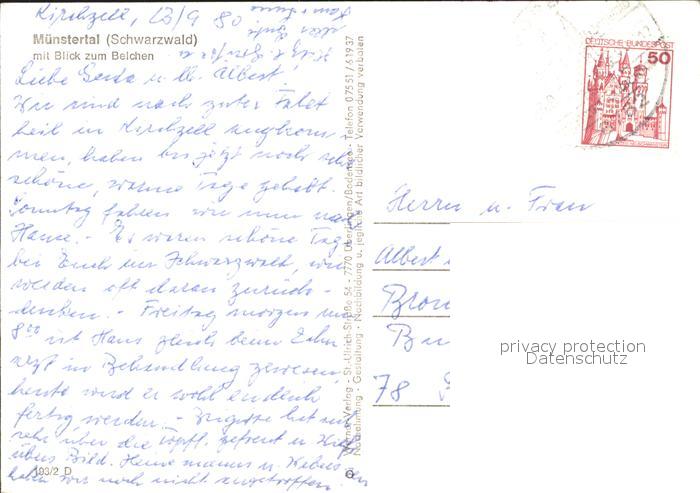 Kirchzell, 23/9 80
Münstertal (Schwarzwald)
mit Blick zum Belchen
Liebe Gerta u. lb. Albert!
Wir sind nach guter Fahrt
heil in Kirchzell angekom-
men, haben bis jetzt noch sehr
schöne, warme Tage gehabt.
Sonntag fahren wir nun nach
Hause. Es waren schöne Tage
bei Euch im Schwarzwald, wir
werden oft daran zurück-
denken. - Freitag morgen um
8⁰⁰ ist Hans gleich beim Zahn-
arzt in Behandlung gewesen,
heute wird er wohl endlich
fertig werden. - hat sich
sehr über die gefreut u.
übers Bild. Heinemanns u.
haben wir noch nicht angetroffen.
193/2 D
Verlag - St.-Ulrich-Straße 54 - 7770 Überlingen/Bodensee - Telefon 07551/61937
Nachahmung - Gestaltung - Nachbildung u. jegliche Art bildlicher Verwendung verboten
DEUTSCHE BUNDESPOST
50
Herrn u. Frau
Albert
78
privacy protection
Datenschutz